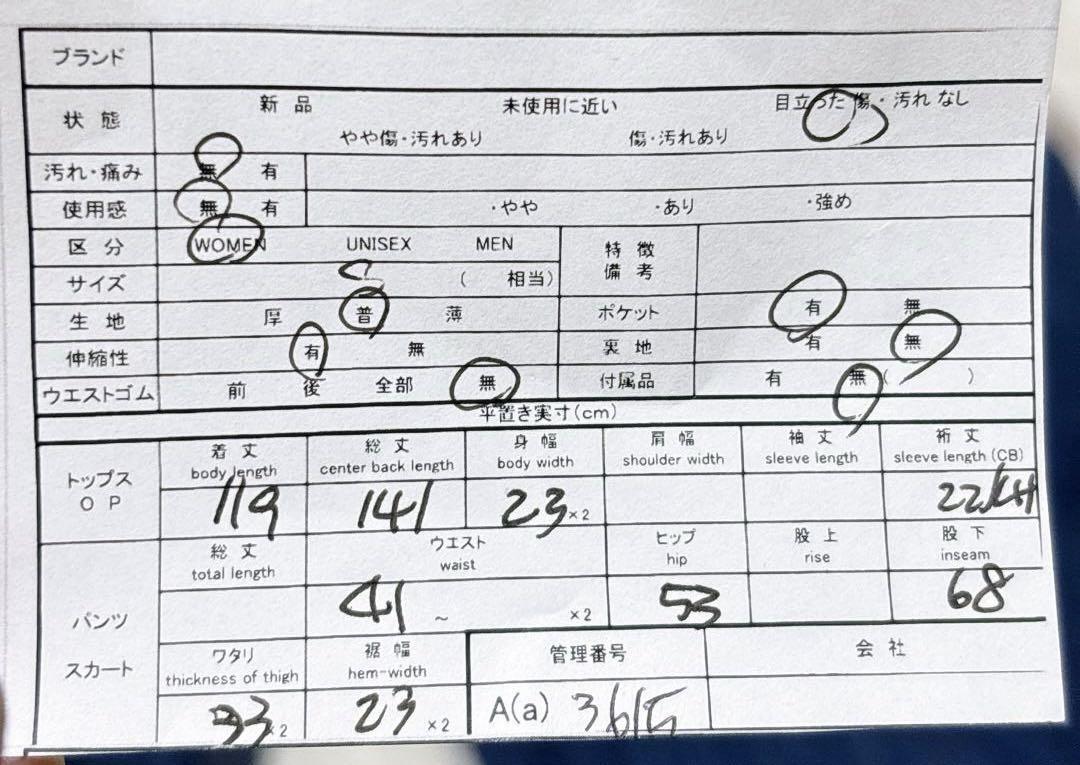 ブランド
状 態 新 品 未使用に近い 目立った傷・汚れ なし
やや傷・汚れあり 傷・汚れあり
汚れ・痛み 無 有
使用感 無 有 ・やや ・あり ・強め
区 分 WOMEN UNISEX MEN 特 徴
備 考
サイズ ( 相当)
生 地 厚 普 薄 ポケット 有 無
伸縮性 有 無 裏 地 有 無
ウエストゴム 前 後 全部 無 付属品 有 無 ( )
平置き実寸(cm)
トップス
O P
着 丈 総 丈 身 幅 肩 幅 袖 丈 裄 丈
body length center back length body width shoulder width sleeve length sleeve length (CB)
119 141 23 ×2
総 丈 ウエスト ヒップ 股 上 股 下
total length waist hip rise inseam
パンツ
スカート
41 ~ ×2 53 68
ワタリ 裾 幅 管理番号 会 社
thickness of thigh hem-width
33 ×2 23 ×2 A(a)